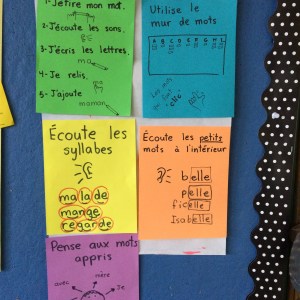 1-J'étire mon mot.
2-J'écoute les sons.
3-J'écris les lettres.
ma
4-Je relis.
5-J'ajoute
maman
Utilise le
mur de mots
A B C D E F G H I
elle
Écoute les
syllabes
malade
mange
regarde
Écoute les petits
mots à l'intérieur
belle
pelle
ficelle
Isabelle
Pense aux mots
appris
avec
mère
Je